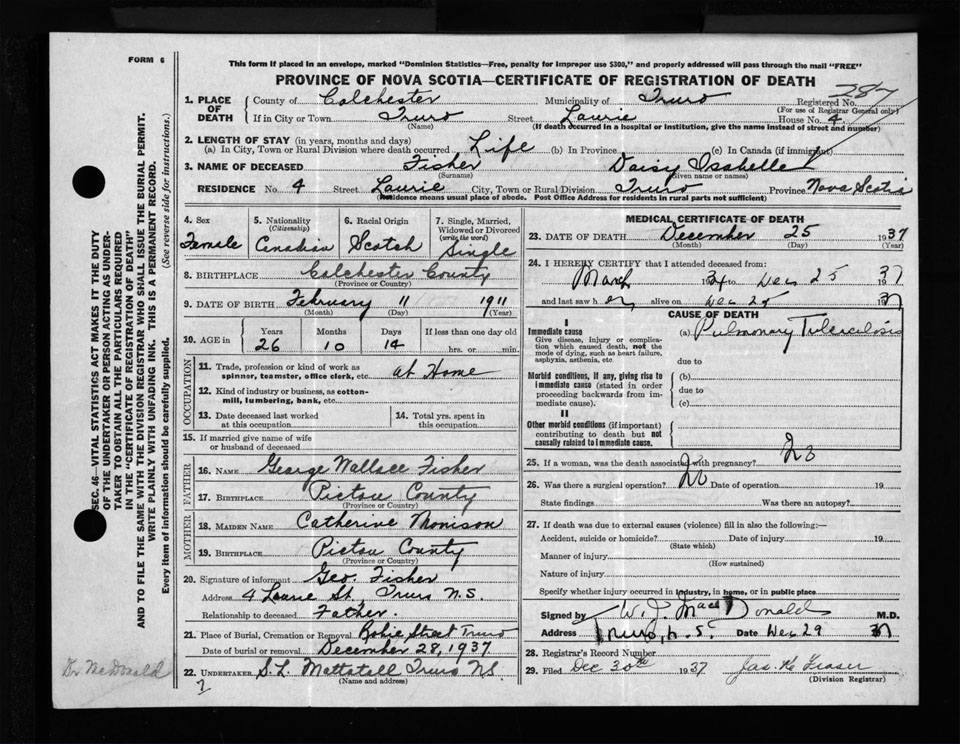 FORM 6
This form if placed in an envelope, marked "Dominion Statistics—Free, penalty for improper use $300," and properly addressed will pass through the mail "FREE"
PROVINCE OF NOVA SCOTIA—CERTIFICATE OF REGISTRATION OF DEATH
287
1. PLACE OF DEATH County of Colchester Municipality of Truro Registered No.
(For use of Registrar General only)
If in City or Town Truro Street Laurie House No. 4
(Name) (If death occurred in a hospital or institution, give the name instead of street and number)
2. LENGTH OF STAY (in years, months and days)
(a) In City, Town or Rural Division where death occurred Life (b) In Province (c) In Canada (if immigrant)
3. NAME OF DECEASED Fisher Daisy Isabelle
(Surname) (Given name or names)
RESIDENCE No. 4 Street Laurie City, Town or Rural Division Truro Province Nova Scotia
(Residence means usual place of abode. Post Office Address for residents in rural parts not sufficient)
4. Sex 5. Nationality (Citizenship) 6. Racial Origin 7. Single, Married, Widowed or Divorced (write the word)
Female Canadian Scotch Single
8. BIRTHPLACE Colchester County
(Province or Country)
9. DATE OF BIRTH February 11 1911
(Month) (Day) (Year)
10. AGE in Years Months Days If less than one day old
26 10 14 hrs. or min.
OCCUPATION
11. Trade, profession or kind of work as spinner, teamster, office clerk, etc. at Home
12. Kind of industry or business, as cotton-mill, lumbering, bank, etc.
13. Date deceased last worked at this occupation
14. Total yrs. spent in this occupation
15. If married give name of wife or husband of deceased
FATHER
16. NAME George Wallace Fisher
17. BIRTHPLACE Pictou County
(Province or Country)
MOTHER
18. MAIDEN NAME Catherine
19. BIRTHPLACE Pictou County
(Province or Country)
20. Signature of informant Geo. Fisher
Address 4 Laurie St. Truro N.S.
Relationship to deceased Father.
21. Place of Burial, Cremation or Removal Robie Street Truro
Date of burial or removal December 28, 1937
22. UNDERTAKER S.L. Mattatall Truro NS
(Name and address)
MEDICAL CERTIFICATE OF DEATH
23. DATE OF DEATH December 25 1937
(Month) (Day) (Year)
24. I HEREBY CERTIFY that I attended deceased from:
March 1934 to Dec 25 1937
and last saw her alive on Dec 25 1937
CAUSE OF DEATH
I
Immediate cause (a) Pulmonary Tuberculosis
Give disease, injury or complication which caused death, not the mode of dying, such as heart failure, asphyxia, asthenia, etc.
due to
Morbid conditions, if any, giving rise to immediate cause (stated in order proceeding backwards from immediate cause).
(b)
due to
(c)
II
Other morbid conditions (if important) contributing to death but not causally related to immediate cause.
25. If a woman, was the death associated with pregnancy? No
26. Was there a surgical operation? No Date of operation 19
State findings Was there an autopsy?
27. If death was due to external causes (violence) fill in also the following:—
Accident, suicide or homicide? Date of injury 19
(State which)
Manner of injury
(How sustained)
Nature of injury
Specify whether injury occurred in industry, in home, or in public place
Signed by W. J. MacDonald M.D.
Address Truro, N.S. Date Dec 29 37
28. Registrar's Record Number
29. Filed Dec 30th 1937 Jas. H. Fraser
(Division Registrar)
SEC. 46—VITAL STATISTICS ACT MAKES IT THE DUTY
OF THE UNDERTAKER OR PERSON ACTING AS UNDER-
TAKER TO OBTAIN ALL THE PARTICULARS REQUIRED
IN THE "CERTIFICATE OF REGISTRATION OF DEATH"
AND TO FILE THE SAME WITH THE DIVISION REGISTRAR WHO SHALL ISSUE THE BURIAL PERMIT.
WRITE PLAINLY WITH UNFADING INK. THIS IS A PERMANENT RECORD.
Every item of information should be carefully supplied. (See reverse side for instructions.)
Dr McDonald